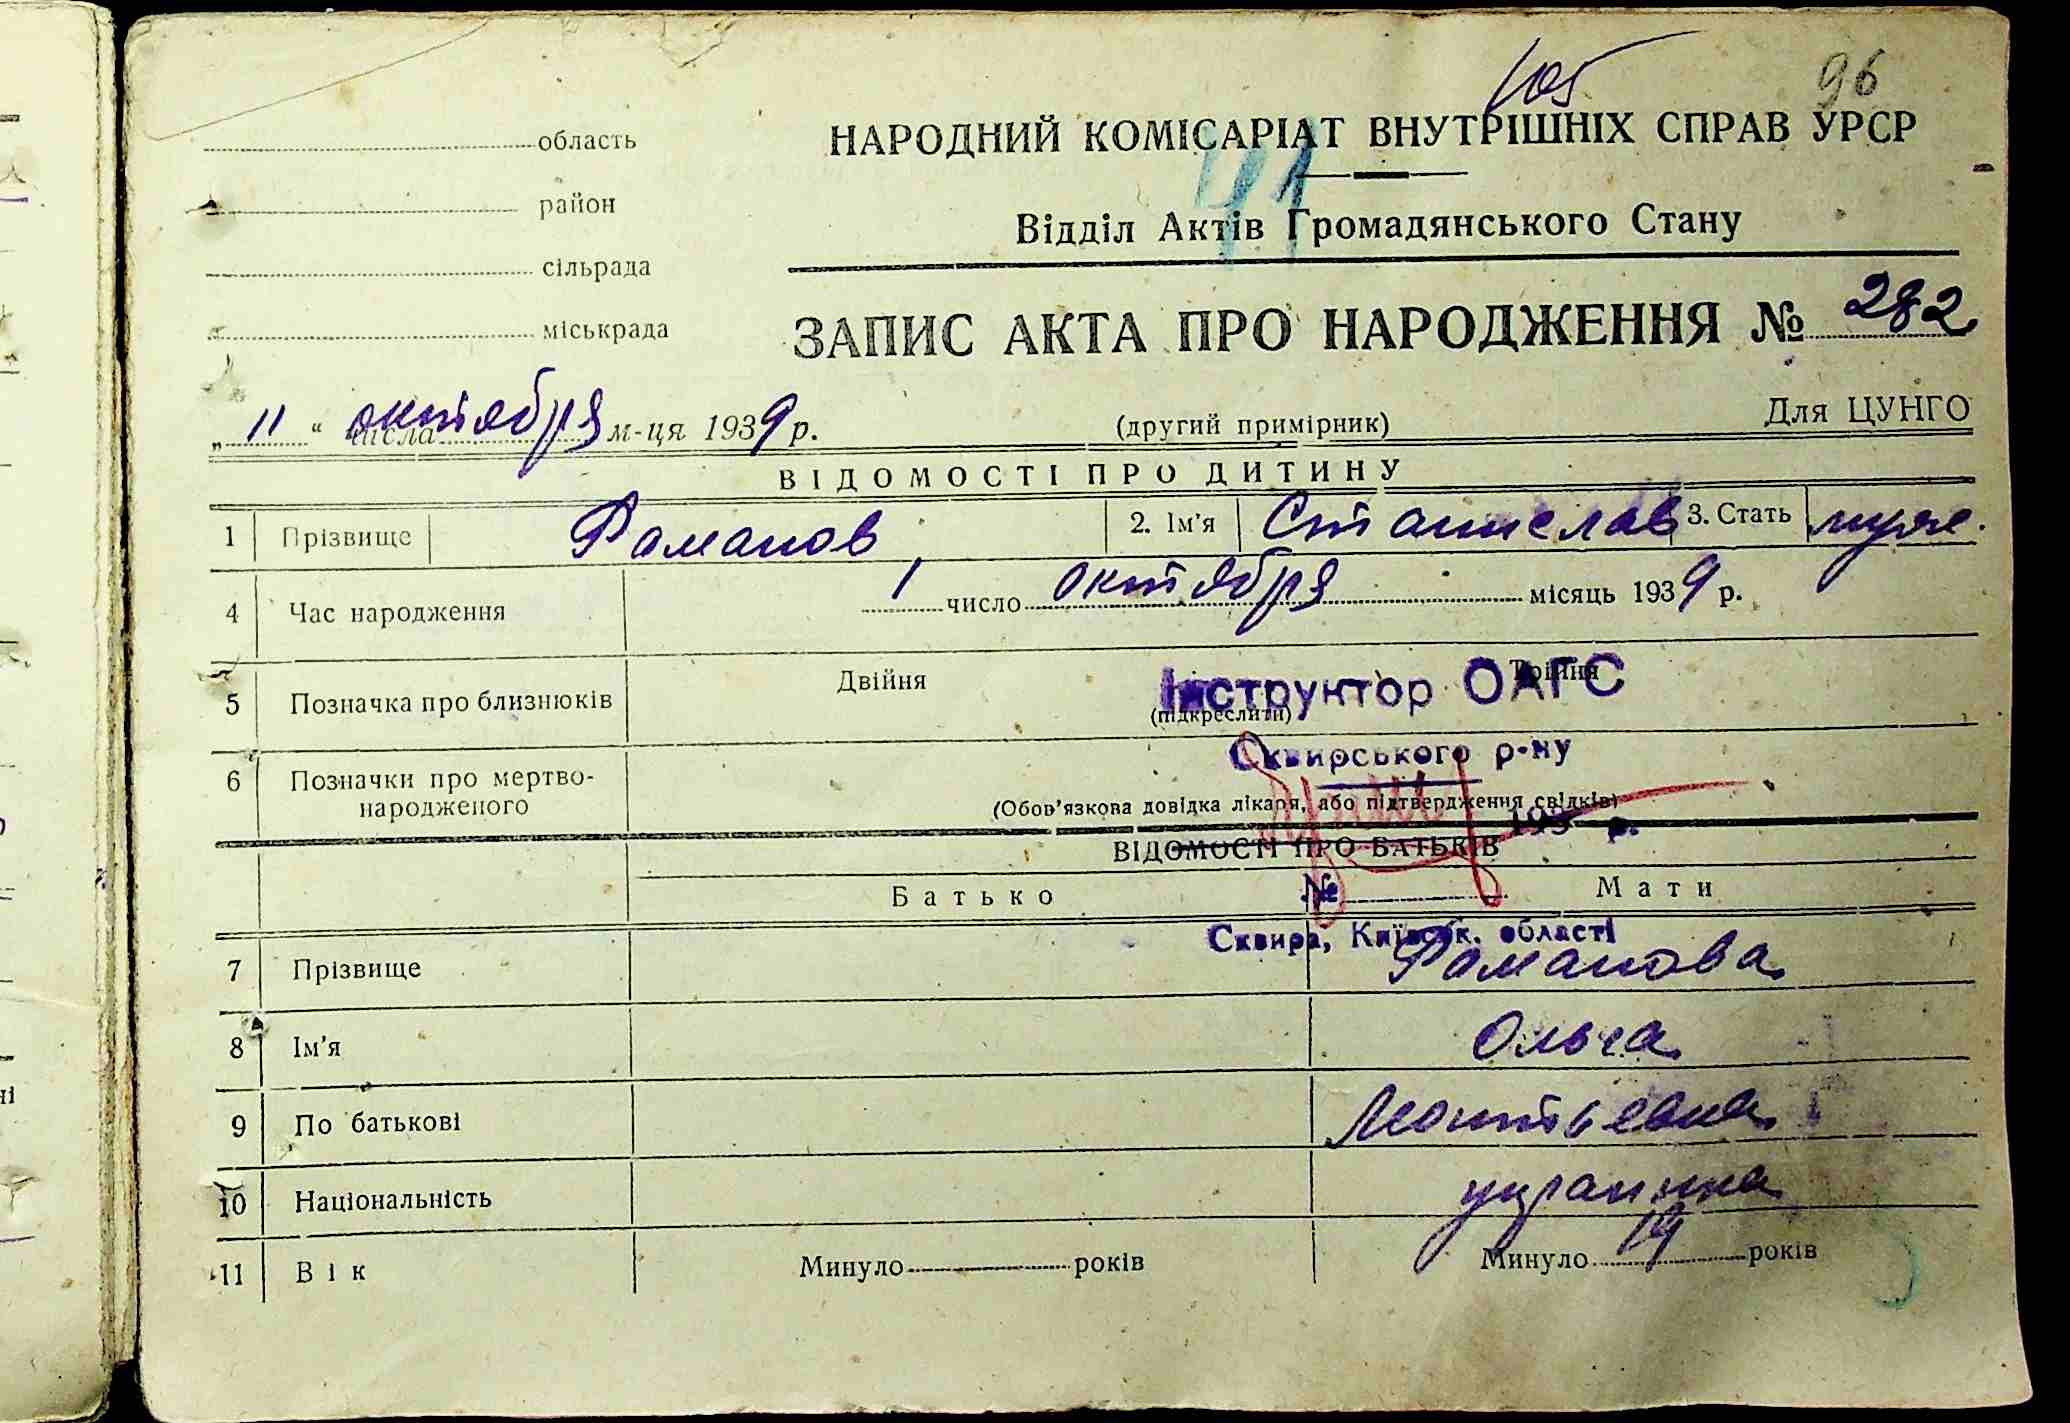 105
96
область
НАРОДНИЙ КОМІСАРІАТ ВНУТРІШНІХ СПРАВ УРСР
41
район
Відділ Актів Громадянського Стану
сільрада
міськрада
ЗАПИС АКТА ПРО НАРОДЖЕННЯ № 282
„ 11 “ числа октября м-ця 1939 р.
(другий примірник)
Для ЦУНГО
ВІДОМОСТІ ПРО ДИТИНУ
1 Прізвище Раманов 2. Ім'я Станислав 3. Стать муж.
4 Час народження 1 число октября місяць 1939 р.
5 Позначка про близнюків Двійня Трійня
(підкреслити)
Інструктор ОАГС
Сквирського р-ну
6 Позначки про мертво-
народженого
(Обов'язкова довідка лікаря, або підтвердження свідків)
193 р.
ВІДОМОСТІ ПРО БАТЬКІВ
Батько
№
Мати
Сквира, Київськ. області
7 Прізвище Раманова
8 Ім'я Ольга
9 По батькові Леонтьевна
10 Національність украинка
11 Вік Минуло років Минуло 19 років